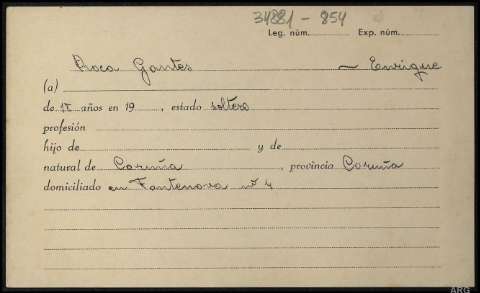 34881 - 854
Leg. núm. Exp. núm.
Roca Gantes — Enrique
(a)
de 17 años en 19 , estado soltero
profesión
hijo de y de
natural de Coruña , provincia Coruña
domiciliado en Fontenova nº 4
ARG